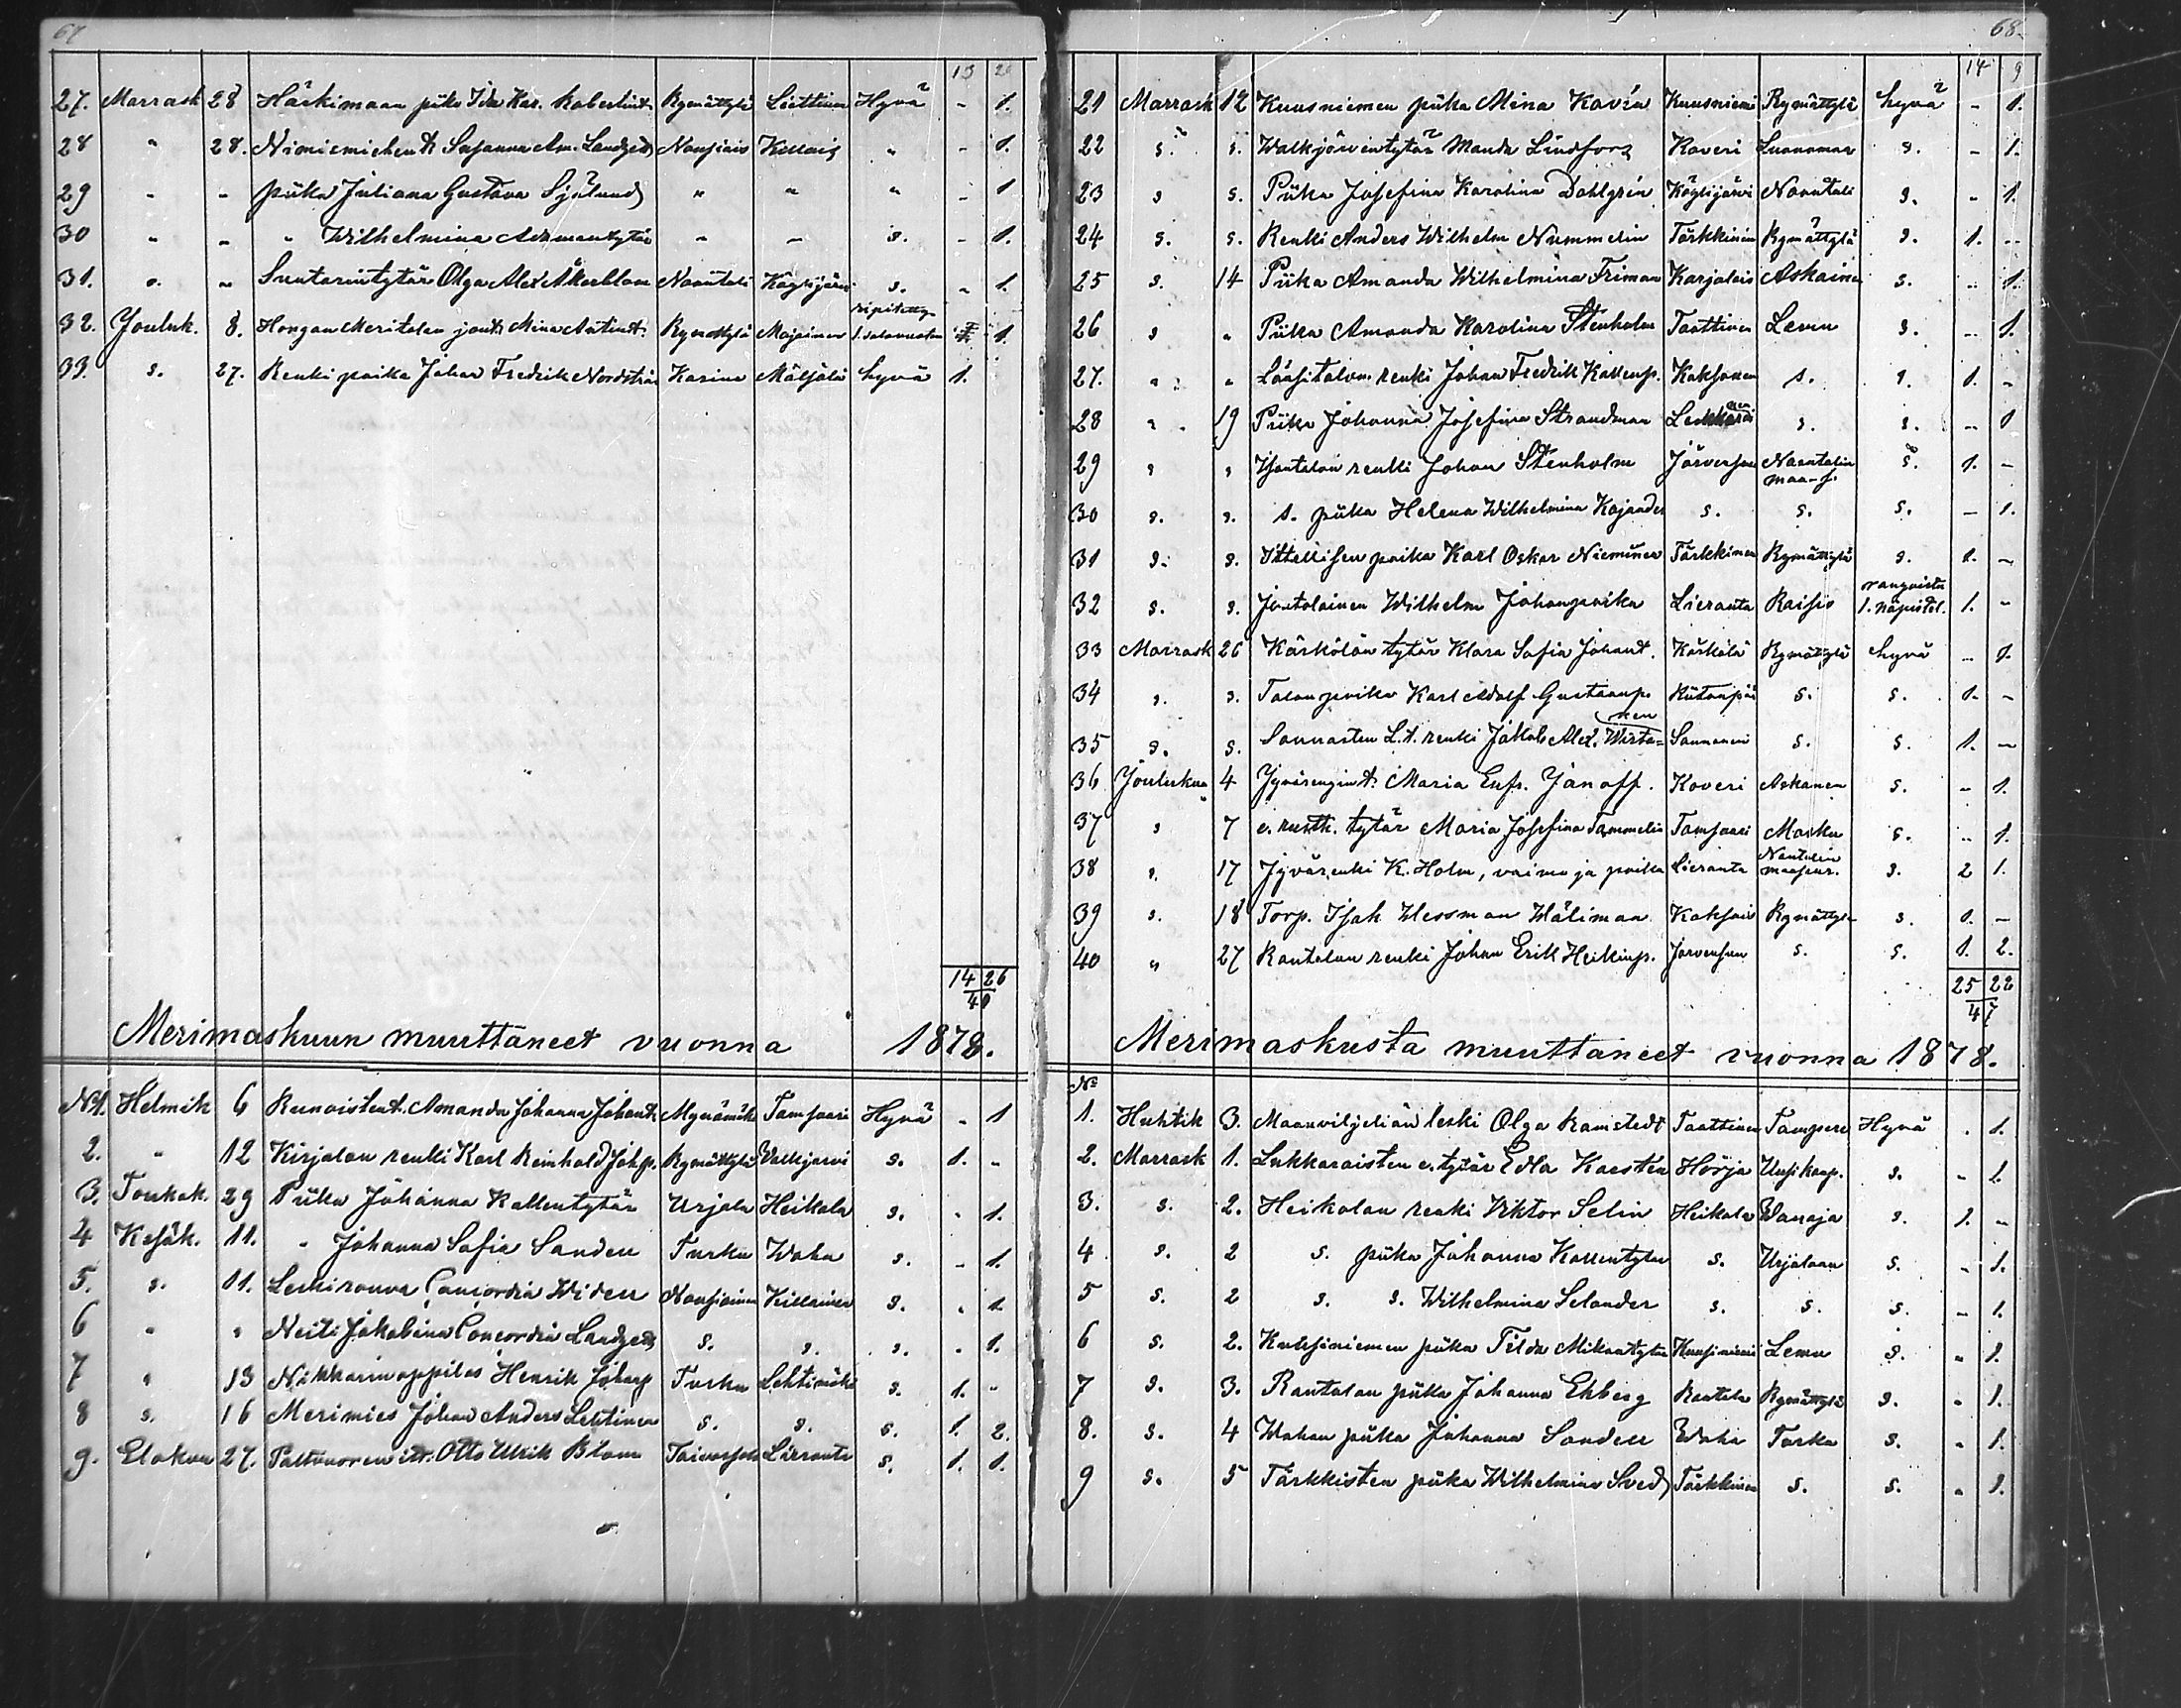 67
13 26
27. Marrask 28 Häskimaan piika Ida Kar. Robertint. Rymättylä Liettinen Hyvä - 1.
28 " 28. Nimismiehen t. Susanna Am. Landzett Nousiais Killais " - 1.
29 - - piika Juliana Gustava Sjölund " " " - 1
30 - - " Wilhelmina Adamantytär - - s. - 1.
31. s. " Suutarintytär Olga Alex Åkerblom Naantali Köylijärvi s. - 1.
32. Jouluk. 8. Hongan Meritalon Mina Antint. Rymättylä Maijainen ripitetty 1. 1.
33. s. 27. Renki poika Johan Fredrik Nordström Karina Mäljälä hyvä 1.
14 26
40
Merimaskuun muuttaneet vuonna 1878.
N:1. Helmik 6 Runoisten t. Amanda Johanna Johant. Mynämäki Tamsaari Hyvä - 1
2. " 12 Kirjalan renki Karl Reinhold Johp. Rymättylä Walkjärvi s. 1. -
3. Toukok. 29 Piika Johanna Kallentytär Urjala Heikola s. - 1.
4 Kesäk. 11. " Johanna Sofia Sandell Turku Waha s. - 1.
5. s. 11. Leskirouva Concordia Widell Nousiainen Killainen s. - 1.
6 " " Neiti Jakobina Concordia Landzett s. s. s. - 1.
7 " 13 Nikkarinoppilas Henrik Johanp Turku Lehtimäki s. 1. -
8 s. 16 Merimies Johan Anders Lehtinen s. s. s. 1. 2.
9. Elokuu 27. Otto Ulrik Blom Taivassalo Lieranta s. 1. 1.
68.
14 9
21 Marrask 12 Kuusniemen piika Mina Kavén Kuusniemi Rymättylä hyvä - 1.
22 s. s. Walkjärven tytär Manda Lindfors Koveri Luonnonmaa s. - 1.
23 s s. Piika Josefina Karolina Dahlgrén Köylijärvi Naantali s. - 1.
24 s. s. Renki Anders Wilhelm Nummelin Tärkkinen Rymättylä s. 1. -
25 s. 14 Piika Amanda Wilhelmina Friman Karjalais Askainen s. - 1.
26 s " Piika Amanda Karolina Stenholm Taattinen Lemu s. - 1.
27. " " Lääsitalon renki Johan Fredrik Kallenp. Kaksoinen s. s. 1. -
28 " 19 Piika Johanna Josefina Strandman s. s. - 1
29 s s Isontalon renki Johan Stenholm Järvensuu Naantalin maas. s. 1. -
30 s. s. s. piika Helena Wilhelmina Kajander s. s. s. - 1.
31 s. s. Itsellisen poika Karl Oskar Nieminen Tärkkinen Rymättylä s. 1. -
32 s. s. Joutolainen Wilhelm Johanpoika Lieranta Raisio rangaistu 1. näpistel. 1. -
33 Marrask 26 Kärkölän tytär Klara Sofia Johant. Kärkölä Rymättylä hyvä - 1.
34 s. s. Talonpoika Karl Adolf Gustaanp. Riitanpää s. s. 1. -
35 s. s. Saunaisten L.t. renki Jakob Alex. Wirta=nen Saunainen s. s. 1. -
36 Joulukuu 4 Jyvärengin t. Maria Eufr. Janoff. Koveri Askanen s. - 1.
37 s 7 e. rusth. tytär Maria Josefina Tammelin Tamsaari Masku s. - 1.
38 s. 17 Jyvärenki K. Holm, vaimo ja poika Lieranta Naantalin maaseur. s. 2 1.
39 s. 18 Torp. Isak Wessman Wäliman Kaksois Rymättylä s. 1. -
40 " 27 Rantalan renki Johan Erik Heikinp. Järvensuu s. s. 1. 2.
25 22
47
Merimaskusta muuttaneet vuonna 1878.
No
1. Huhtik 3. Maanviljeliän leski Olga Ramstedt Taattinen Tampere Hyvä . 1.
2. Marrask 1. Lukkaraisten e. tytär Edla Karstén Höyjä Uusikaup. s. - 1.
3. s. 2. Heikolan renki Viktor Selin Heikola Wanaja s. 1. -
4 s. 2 s. piika Johanna Kallentytär s. Urjalaan s. - 1.
5 s. 2 s. s. Wilhelmina Selander s. s. s. - 1.
6 s. 2. Kuusniemen piika Tilda Mikontytär Kuusniemi Lemu s. " 1.
7 s. 3. Rantalan piika Johanna Ekberg Rantala Rymättylä s. " 1.
8. s. 4 Wahan piika Johanna Sandell Waha Turku s. " 1.
9 s. 5 Tärkkisten piika Wilhelmina Sved Tärkkinen s. s. " 1.